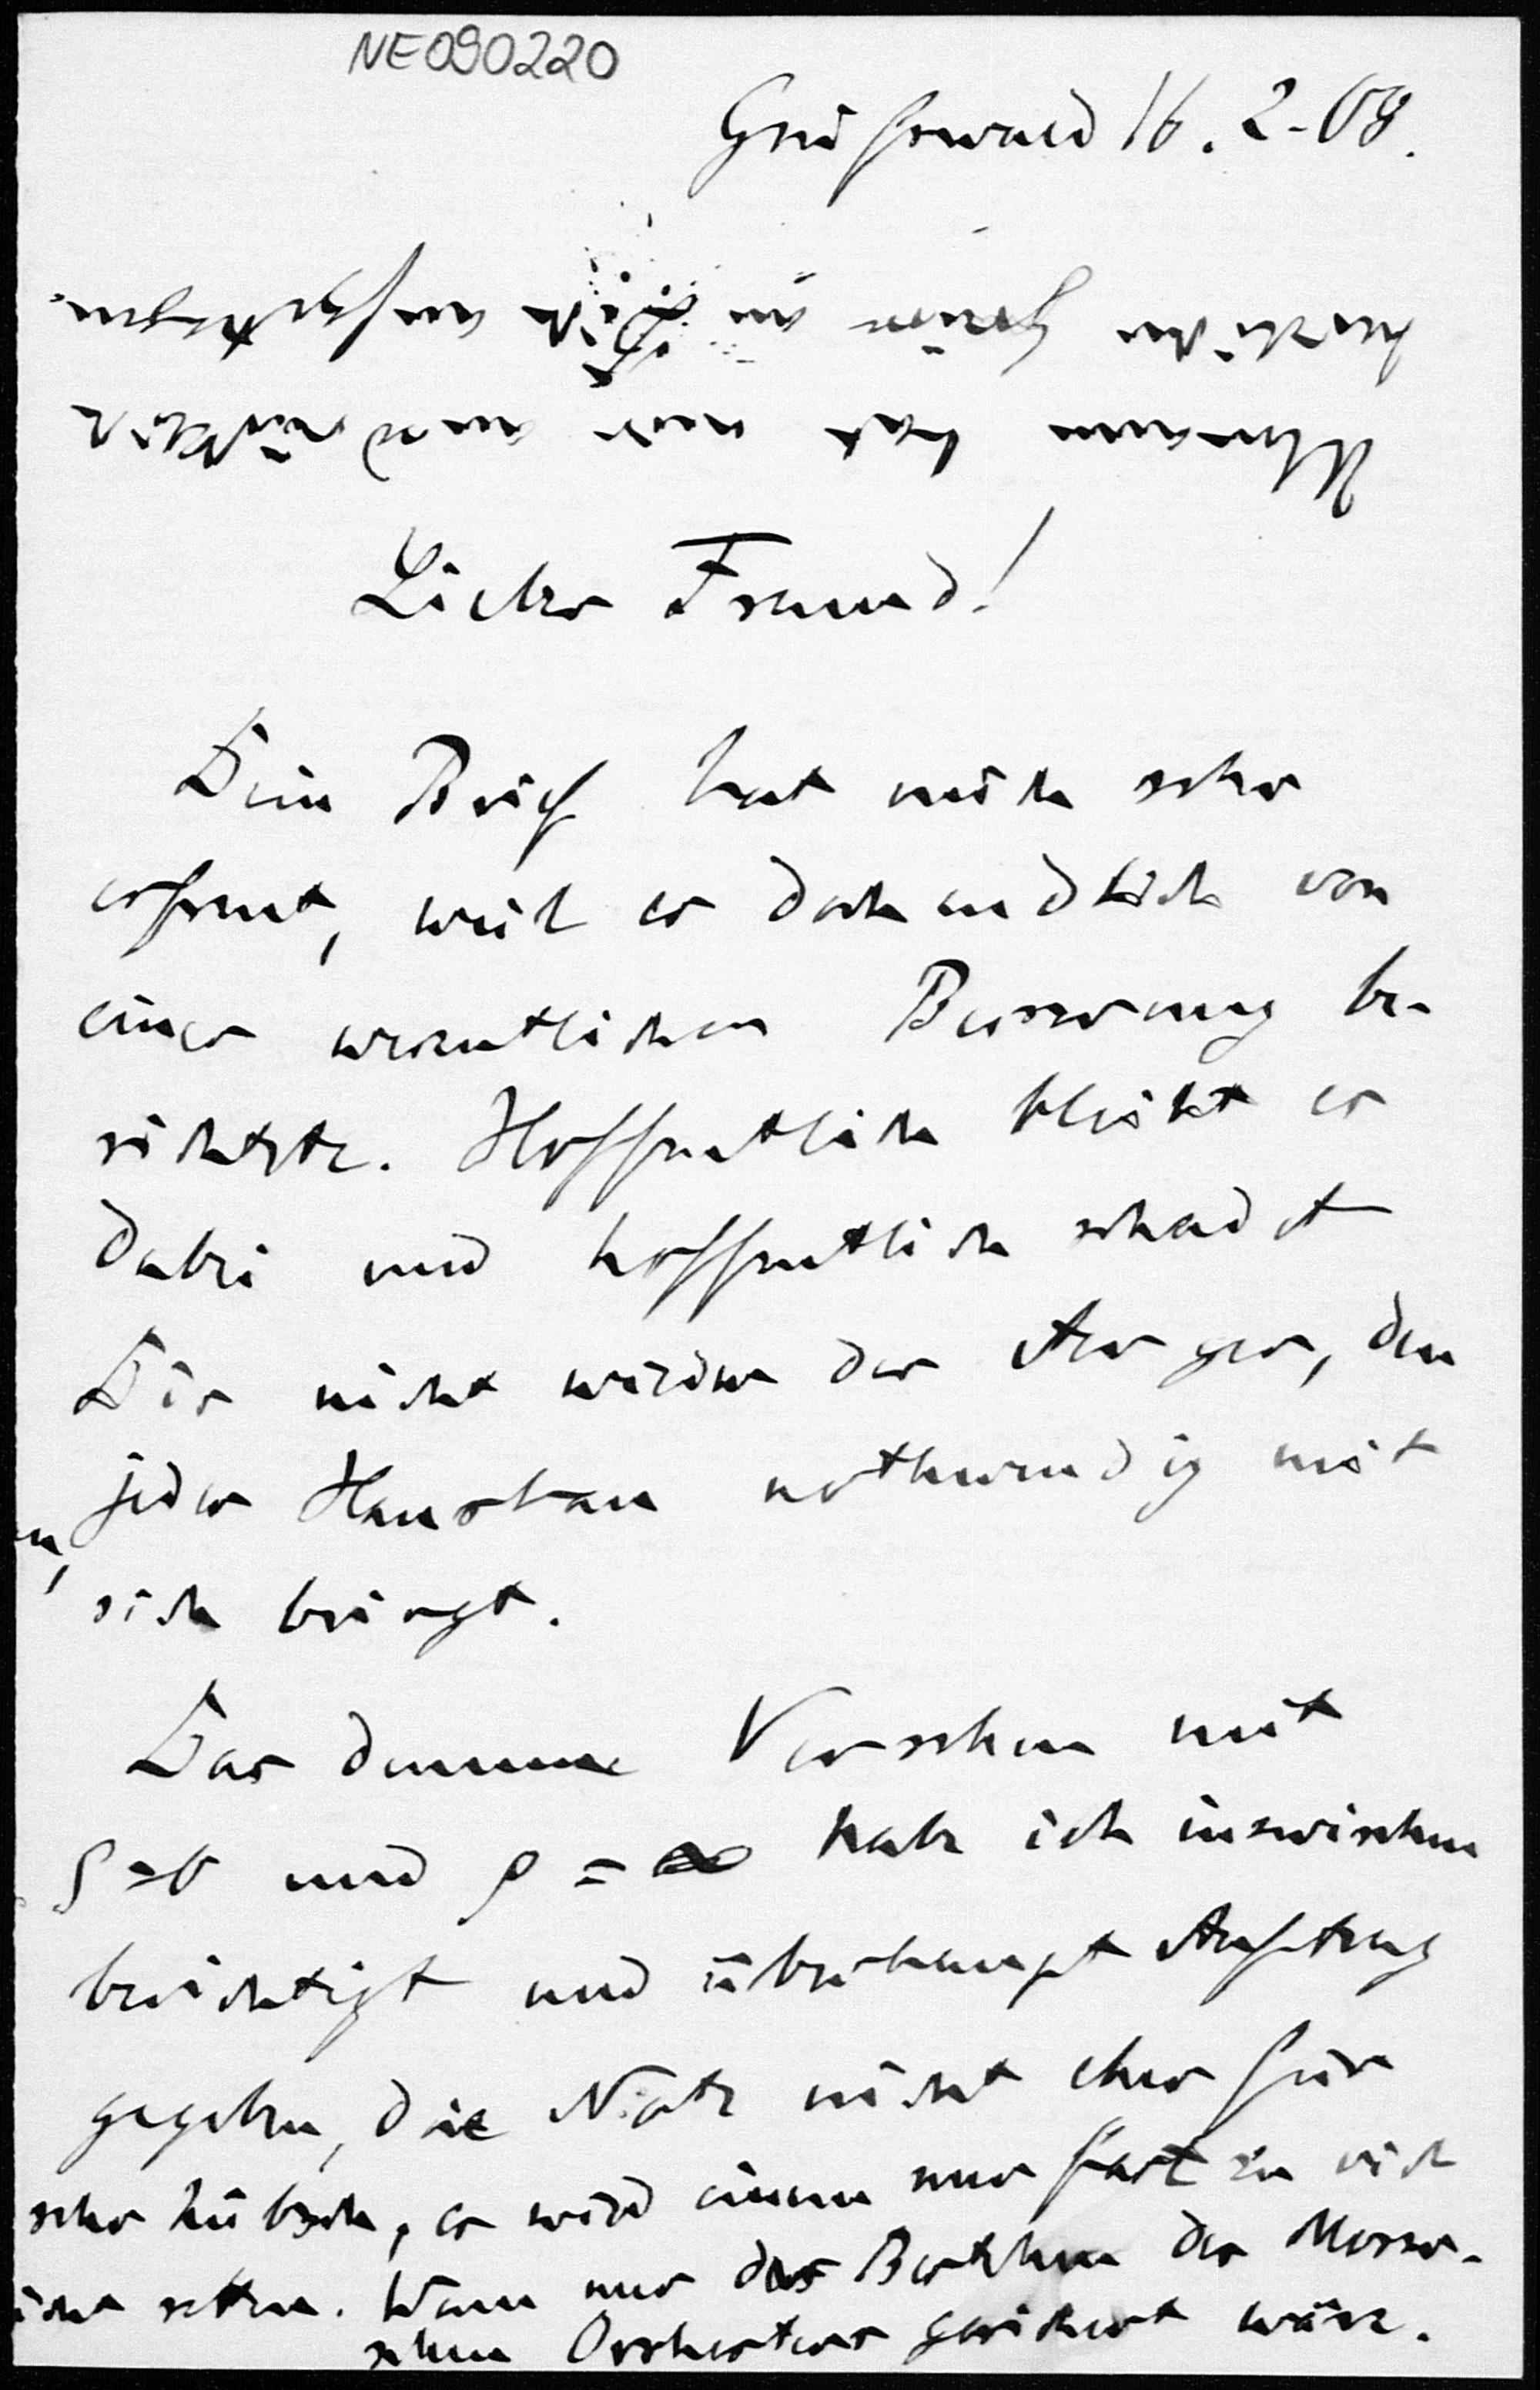 NE090220
Greifswald 16.2.09.
Lieber Freund!
Dein Brief hat mich sehr
erfreut, weil er doch endlich von
einer wesentlichen Besserung be-
richtete. Hoffentlich bleibt es
dabei und hoffentlich schadet
Dir nicht wieder der Aerger, den
jeder Hausbau nothwendig mit
sich bringt.
Das dumme Versehen mit
ρ=0 und ρ=∞ habe ich inzwischen
berichtigt und überhaupt Auftrag
gegeben, die Note nicht eher für
sehr hübsch, es wird einem nur fast zu viel
selten. Wenn nur das Bestehen des Messer-
schen Orchesters gesichert wäre.
Ulmann hat mir ausdrücklich
herzliche Grüsse an Dich aufgetragen.